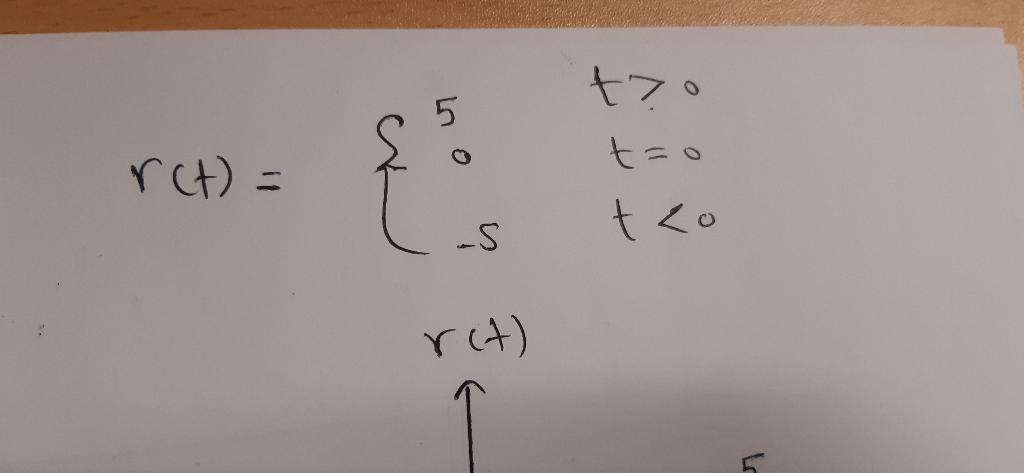 r(t) = { 5 t>0
0 t=0
-5 t<0
r(t)
5